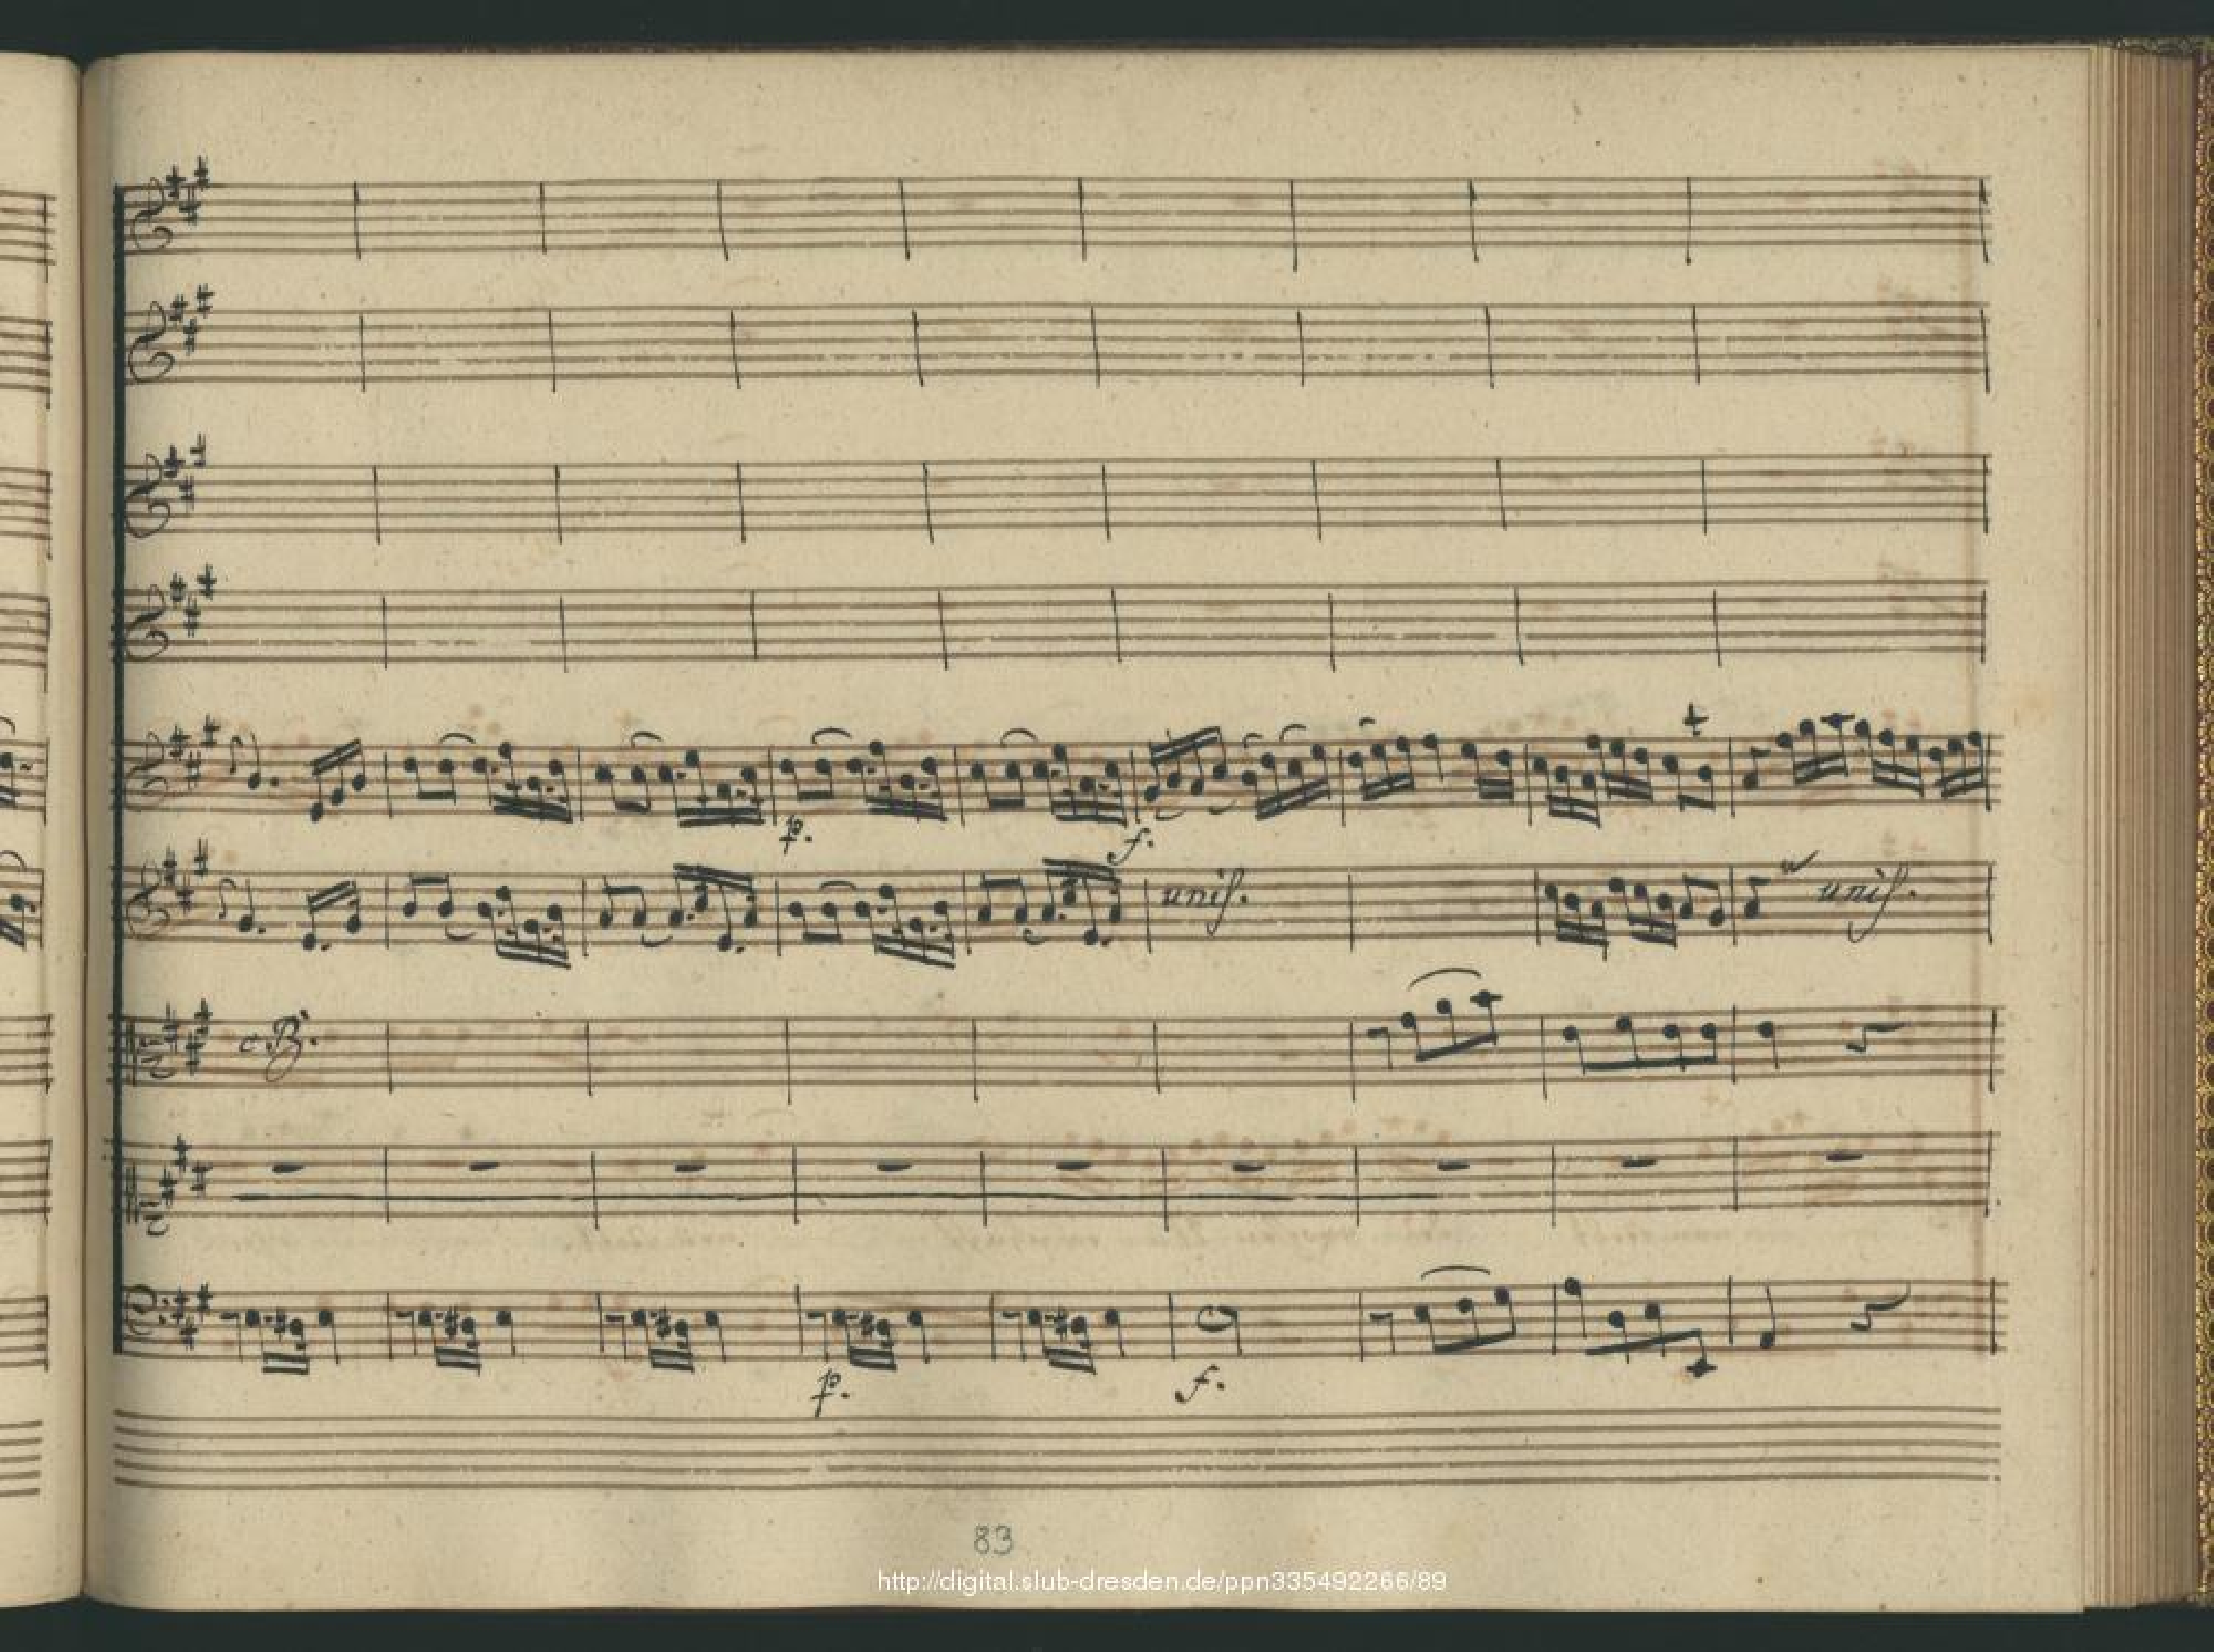 p.
f.
unis.
unis.
c B.
p.
f.
83
http://digital.slub-dresden.de/ppn335492266/89